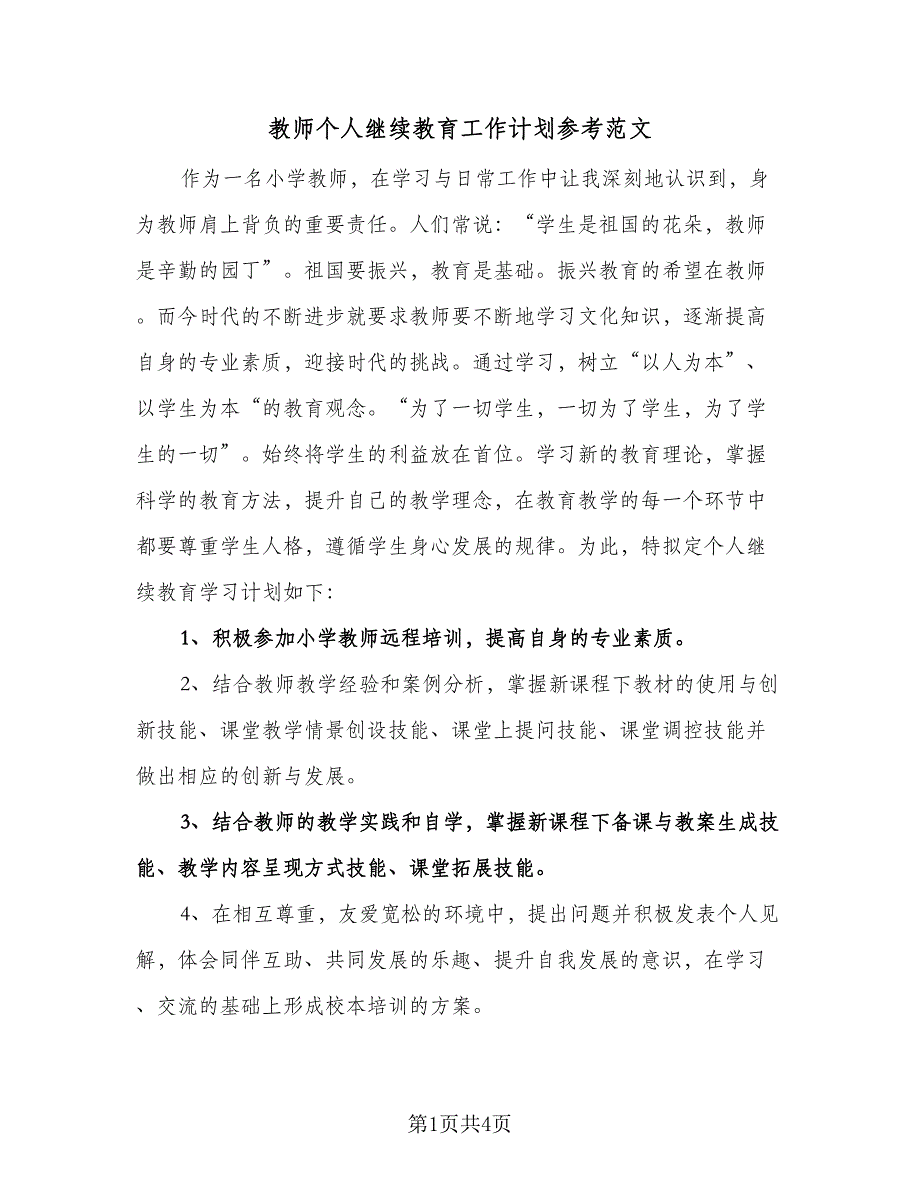 教师个人继续教育工作计划参考范文
作为一名小学教师，在学习与日常工作中让我深刻地认识到，身
为教师肩上背负的重要责任。人们常说：“学生是祖国的花朵，教师
是辛勤的园丁”。祖国要振兴，教育是基础。振兴教育的希望在教师
。而今时代的不断进步就要求教师要不断地学习文化知识，逐渐提高
自身的专业素质，迎接时代的挑战。通过学习，树立“以人为本”、
以学生为本“的教育观念。“为了一切学生，一切为了学生，为了学
生的一切”。始终将学生的利益放在首位。学习新的教育理论，掌握
科学的教育方法，提升自己的教学理念，在教育教学的每一个环节中
都要尊重学生人格，遵循学生身心发展的规律。为此，特拟定个人继
续教育学习计划如下：
1、积极参加小学教师远程培训，提高自身的专业素质。
2、结合教师教学经验和案例分析，掌握新课程下教材的使用与创
新技能、课堂教学情景创设技能、课堂上提问技能、课堂调控技能并
做出相应的创新与发展。
3、结合教师的教学实践和自学，掌握新课程下备课与教案生成技
能、教学内容呈现方式技能、课堂拓展技能。
4、在相互尊重，友爱宽松的环境中，提出问题并积极发表个人见
解，体会同伴互助、共同发展的乐趣、提升自我发展的意识，在学习
、交流的基础上形成校本培训的方案。
第1页共4页